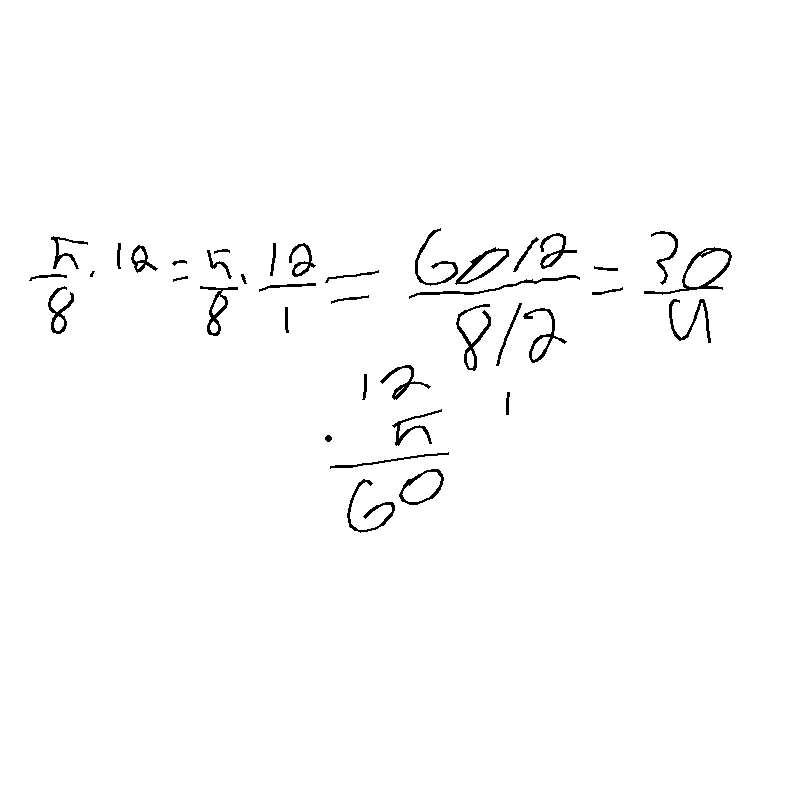 5/8 · 12 = 5/8 · 12/1 = 60/2 / 8/2 = 30/4
12
· 5
60